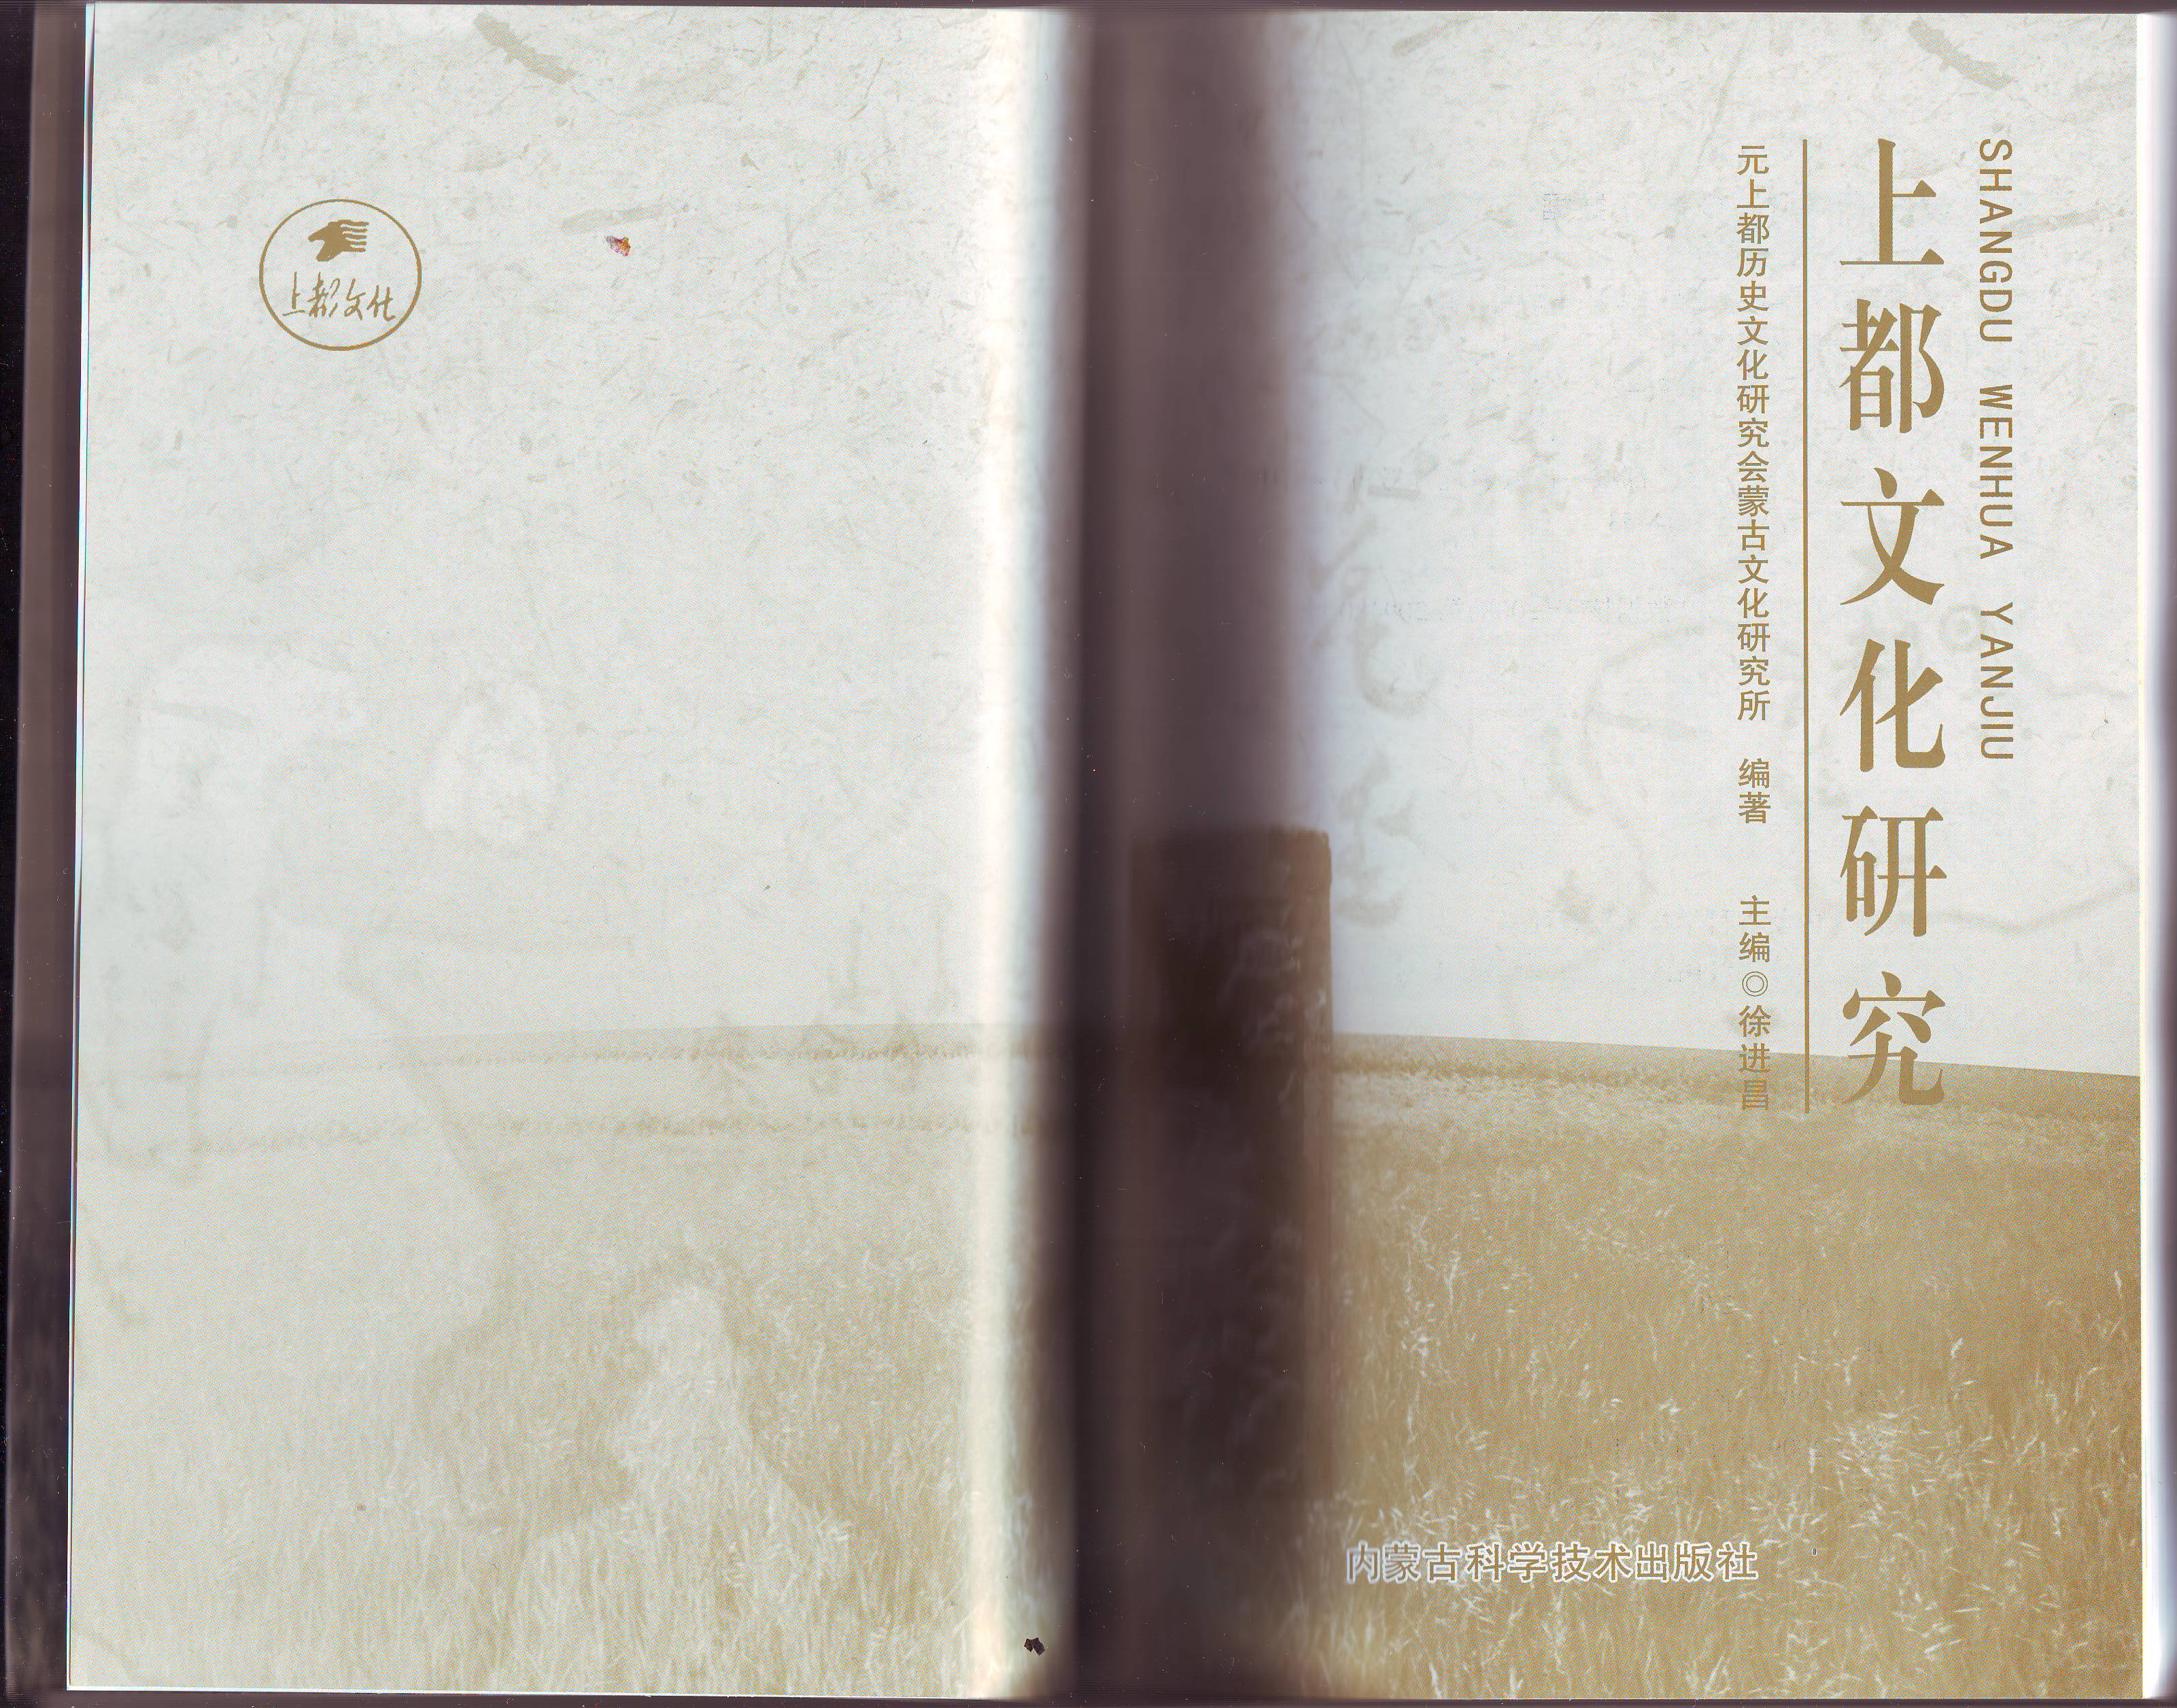 SHANGDU WENHUA YANJIU
上都文化研究
元上都历史文化研究会蒙古文化研究所 编著 主编◎徐进昌
内蒙古科学技术出版社
上都文化